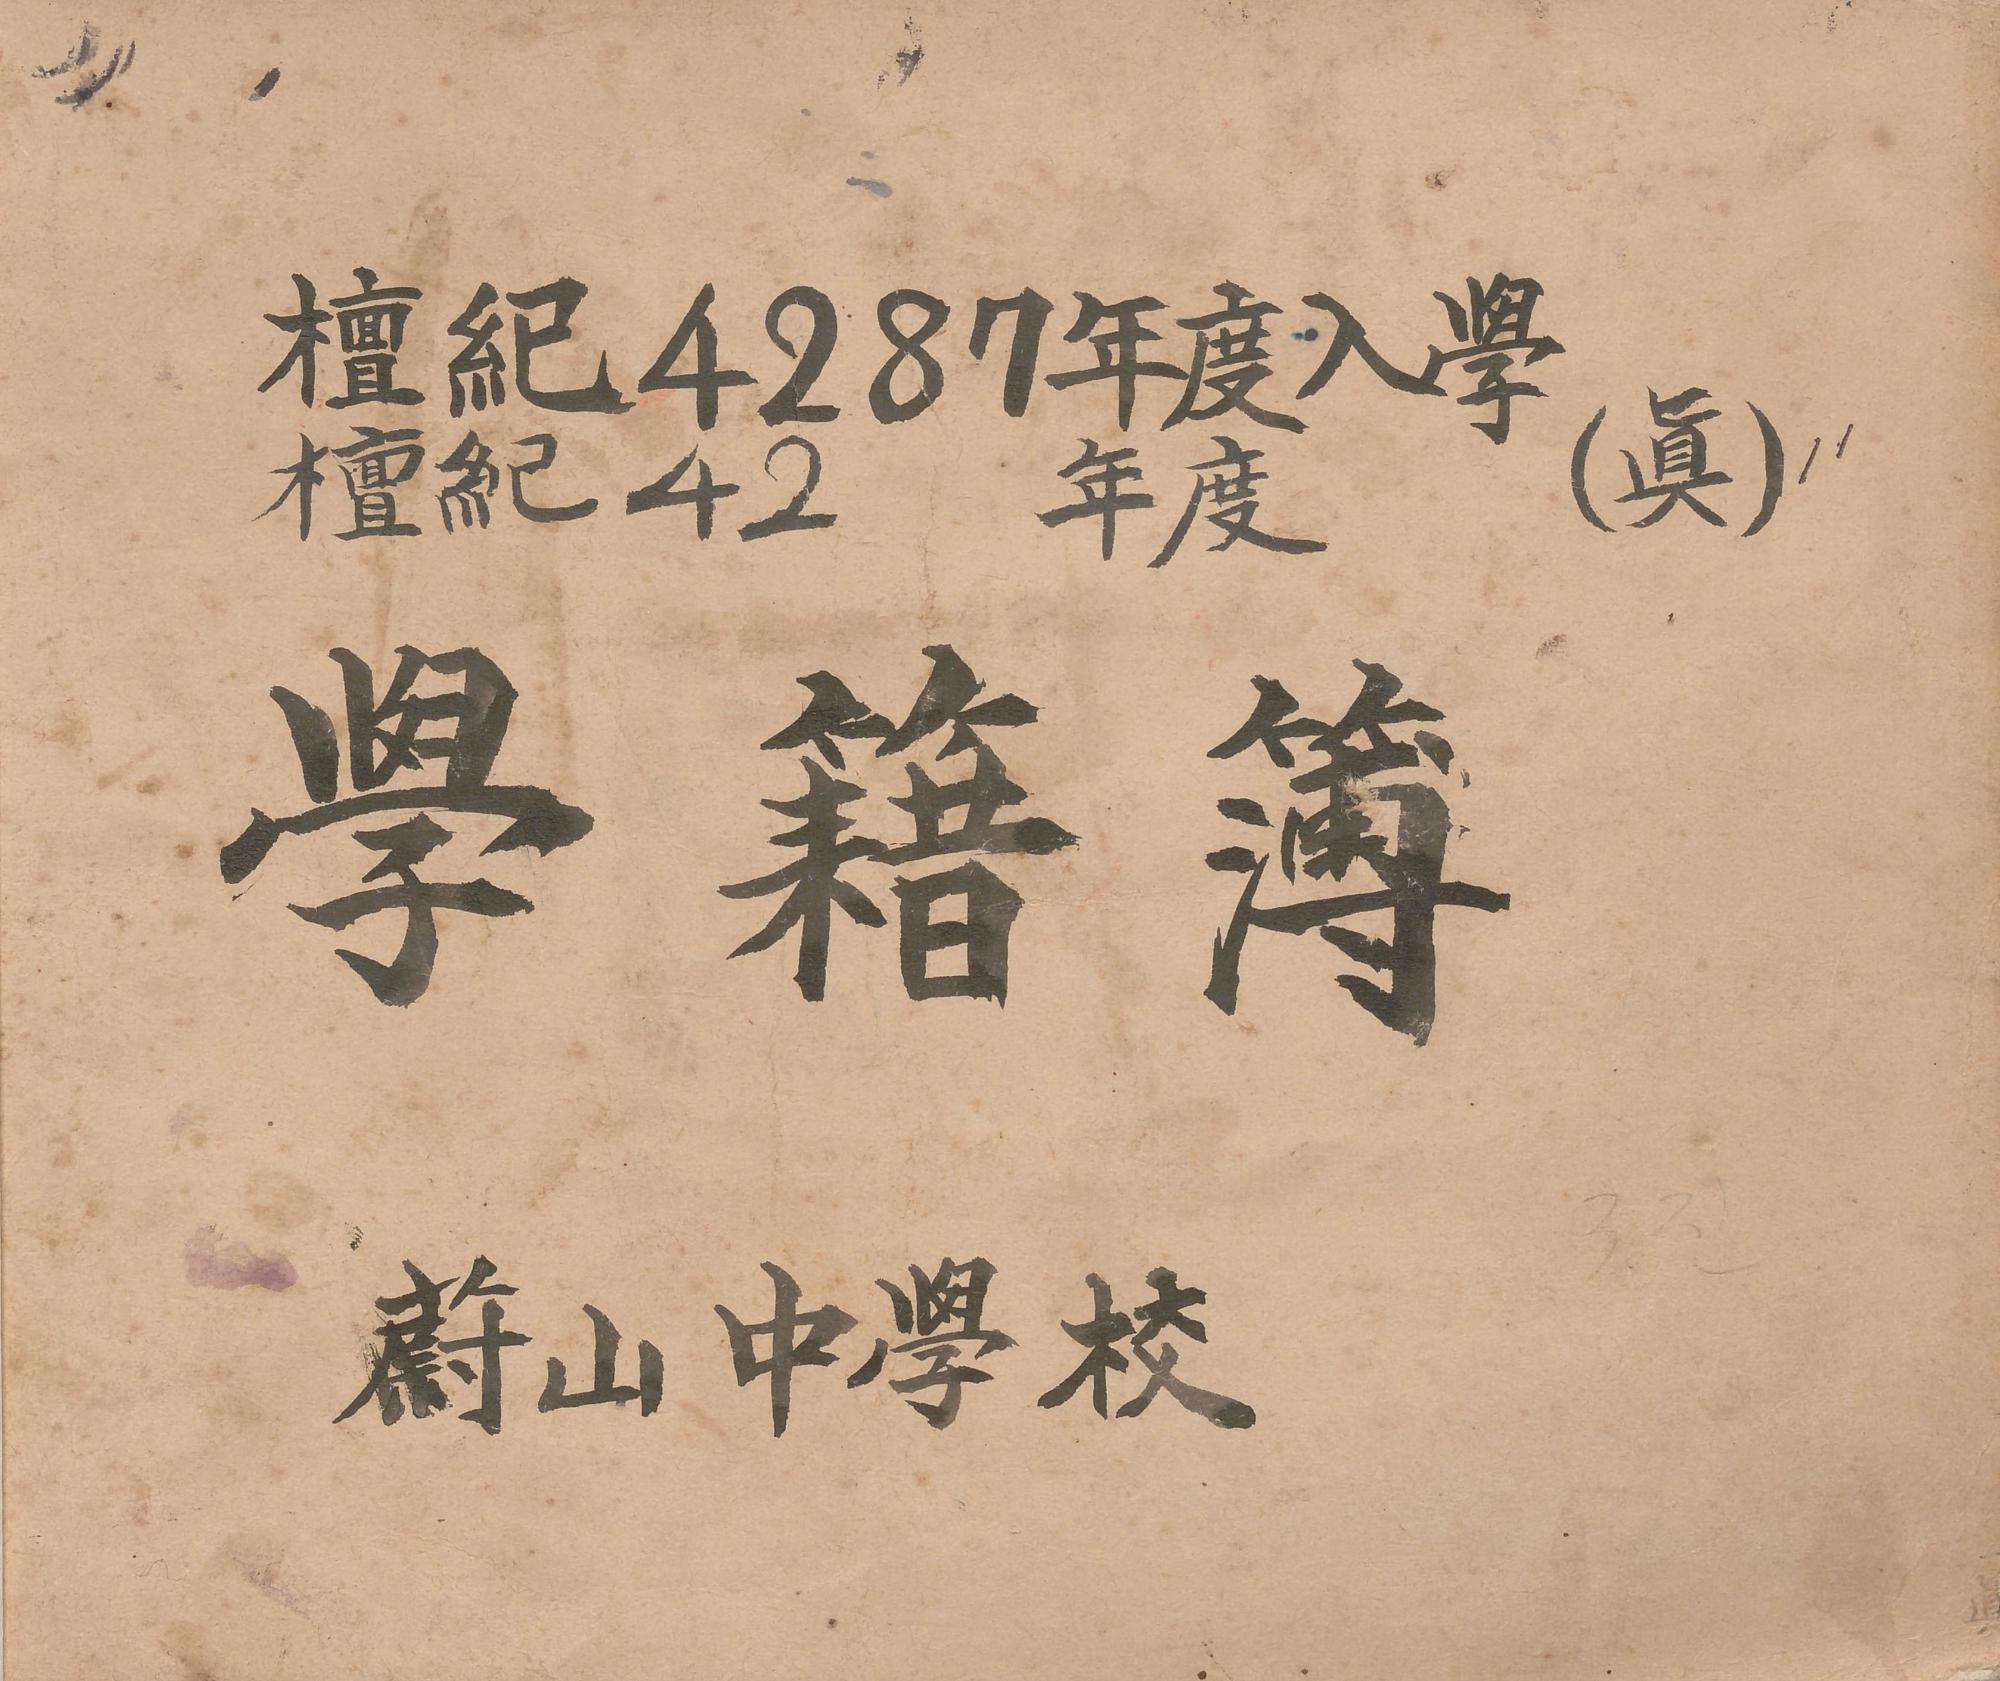 檀紀4287年度入學
檀紀42 年度
(眞)
學籍簿
蔚山中學校